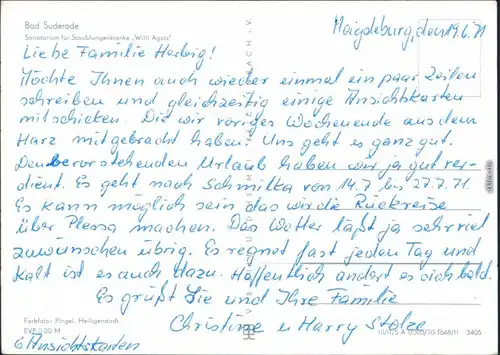 Bad Suderode
Sanatorium für Staublungenkranke „Willi Agatz"
Magdeburg, den 19.6.71
Liebe Familie Herbig!
Möchte Ihnen auch wieder einmal ein paar Zeilen
schreiben und gleichzeitig einige Ansichtskarten
mitschicken. Die wir voriges Wochenende aus dem
Harz mitgebracht haben. Uns geht es ganz gut.
Den bevorstehenden Urlaub haben wir ja gut ver-
dient. Es geht nach Schmilka von 14.7 bis 27.7.71.
Es kann möglich sein das wir die Rückreise
über Plessa machen. Das Wetter läßt ja sehr viel
zuwünschen übrig. Es regnet fast jeden Tag und
Kalt ist es auch dazu. Hoffentlich ändert es sich bald.
Es grüßt Sie und Ihre Familie
Christine u Harry Stolze
Farbfoto: Pingel, Heiligenstadt
EVP 0,20 M
3405
6 Ansichtskarten